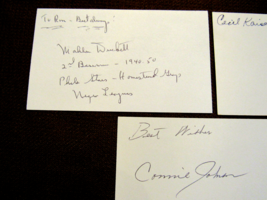 To Ron - Best Always!
Mahlon Duckett
2nd Baseman - 1940-50
Phila Stars - Homestead Grays
Negro Leagues
Cecil Kaiser
Best Wishes
Connie Johnson